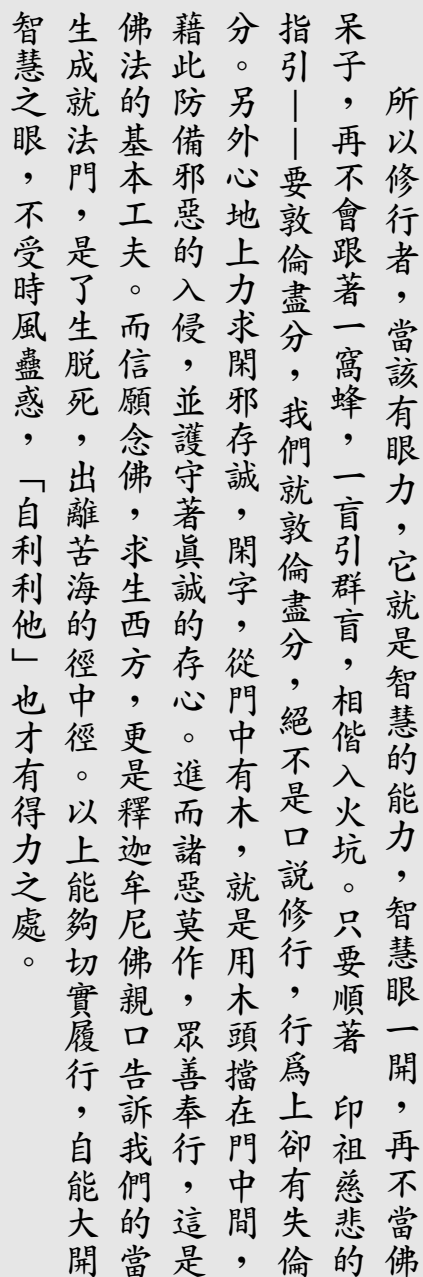 所以修行者，當該有眼力，它就是智慧的能力，智慧眼一開，再不當佛
呆子，再不會跟著一窩蜂，一盲引群盲，相偕入火坑。只要順著　印祖慈悲的
指引——要敦倫盡分，我們就敦倫盡分，絕不是口說修行，行爲上卻有失倫
分。另外心地上力求閑邪存誠，閑字，從門中有木，就是用木頭擋在門中間，
藉此防備邪惡的入侵，並護守著眞誠的存心。進而諸惡莫作，眾善奉行，這是
佛法的基本工夫。而信願念佛，求生西方，更是釋迦牟尼佛親口告訴我們的當
生成就法門，是了生脫死，出離苦海的徑中徑。以上能夠切實履行，自能大開
智慧之眼，不受時風蠱惑，「自利利他」也才有得力之處。